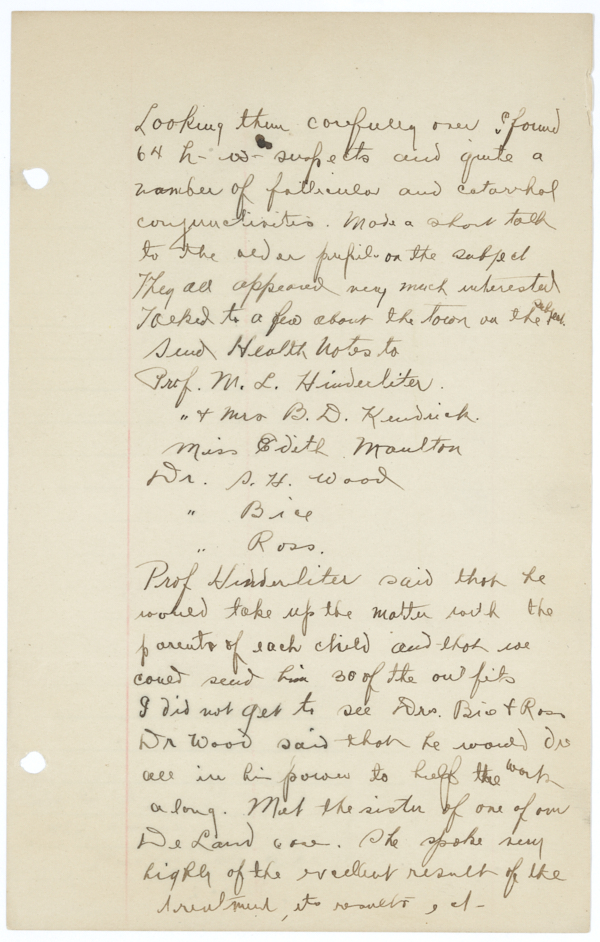 Looking them carefully over I found
64 h- w- suspects and quite a
number of follicular and catarrhal
conjunctivitis. Made a short talk
to the older pupils on the subject
They all appeared very much interested
Talked to a few about the town on the subject.
Send Health Notes to
Prof. M. L. Hinderliter.
" + Mrs B. D. Kendrick.
Miss Edith Moulton
Dr. S. H. Wood
" Bice
" Ross.
Prof Hinderliter said that he
would take up the matter with the
parents of each child and that we
could send him 30 of the outfits
I did not get to see Drs. Bice + Ross
Dr Wood said that he would do
all in his power to help the work
along. Met the sister of one of our
De Land case. She spoke very
highly of the excellent result of the
treatment, its results, et-